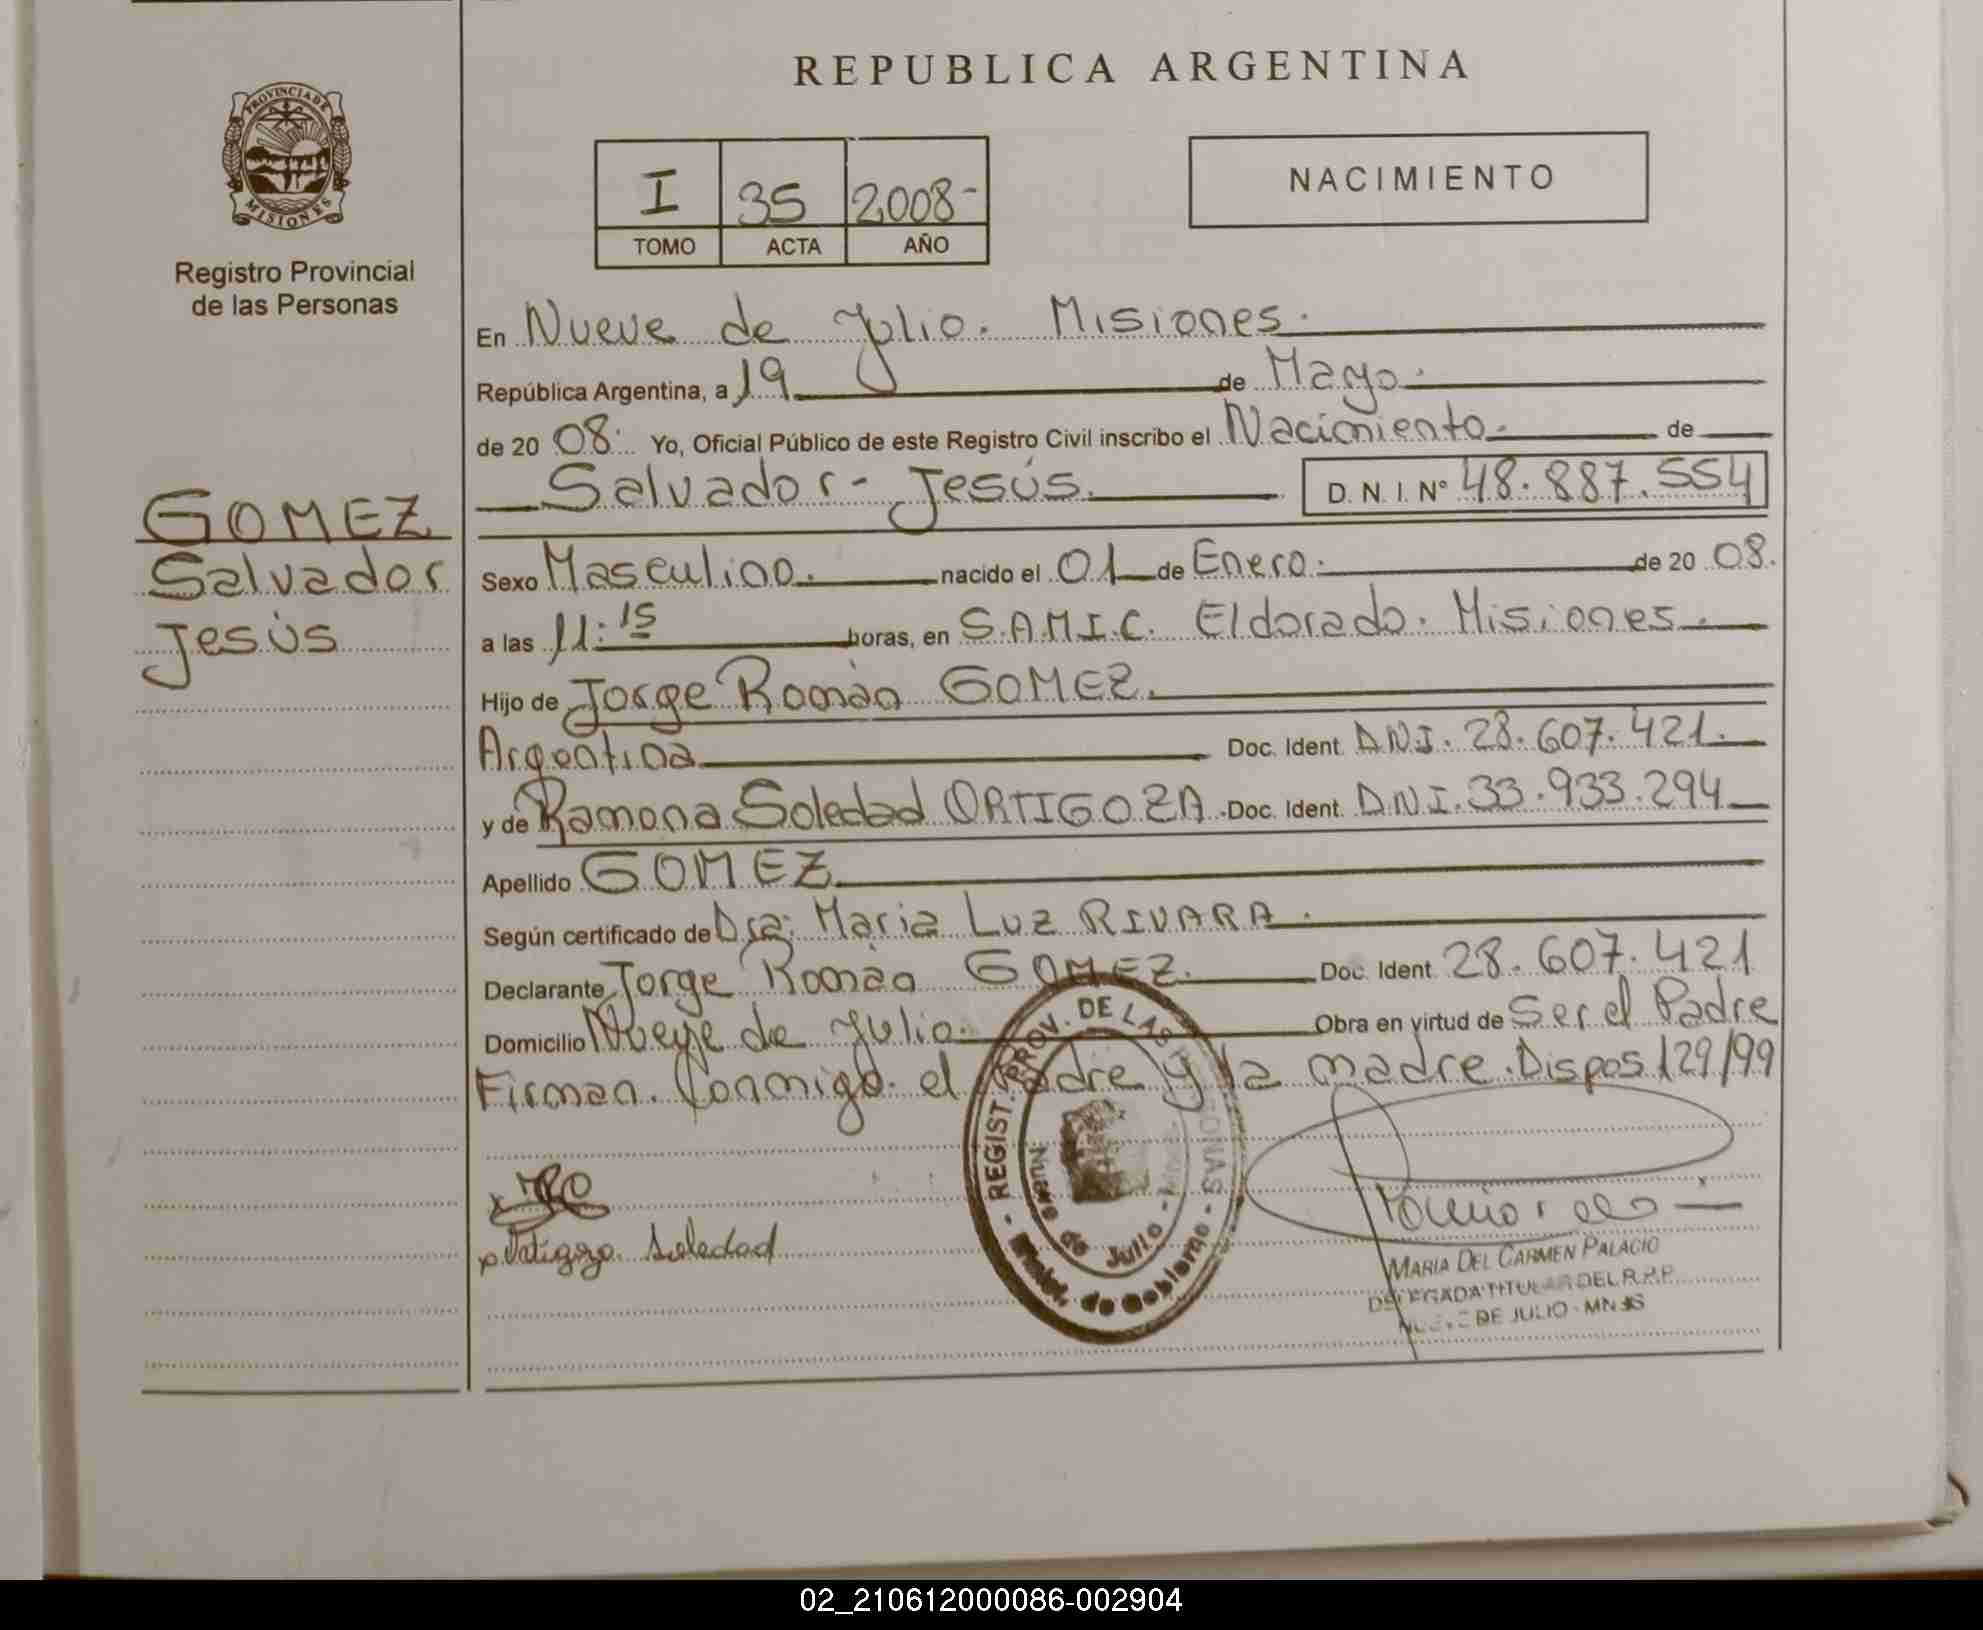 REPUBLICA ARGENTINA
PROVINCIA DE MISIONES
Registro Provincial
de las Personas
I 35 2008-
TOMO ACTA AÑO
NACIMIENTO
GOMEZ
Salvador
Jesús
En Nueve de Julio. Misiones.
República Argentina, a 19 de Mayo.
de 20 08. Yo, Oficial Público de este Registro Civil inscribo el Nacimiento. de
Salvador - Jesús. D. N. I. N° 48.887.554
Sexo Masculino. nacido el 01 de Enero. de 20 08.
a las 11:15 horas, en S.A.M.I.C. Eldorado. Misiones.
Hijo de Jorge Román GOMEZ.
Argentina Doc. Ident. D.N.I. 28.607.421.
y de Ramona Soledad ORTIGOZA. Doc. Ident. D.N.I. 33.933.294
Apellido GOMEZ
Según certificado de Dra. Maria Luz RIVARA.
Declarante Jorge Román GOMEZ. Doc. Ident. 28.607.421
Domicilio Nueve de Julio. Obra en virtud de Ser el Padre
Firman. Conmigo. el Padre y la madre. Dispos 129/99
REGIST. PROV. DE LAS PERSONAS - Minist. de Gobierno -
Nueve de Julio -
Soledad
MARIA DEL CARMEN PALACIO
DELEGADA TITULAR DEL R.P.P.
NUEVE DE JULIO - MNES
02_210612000086-002904